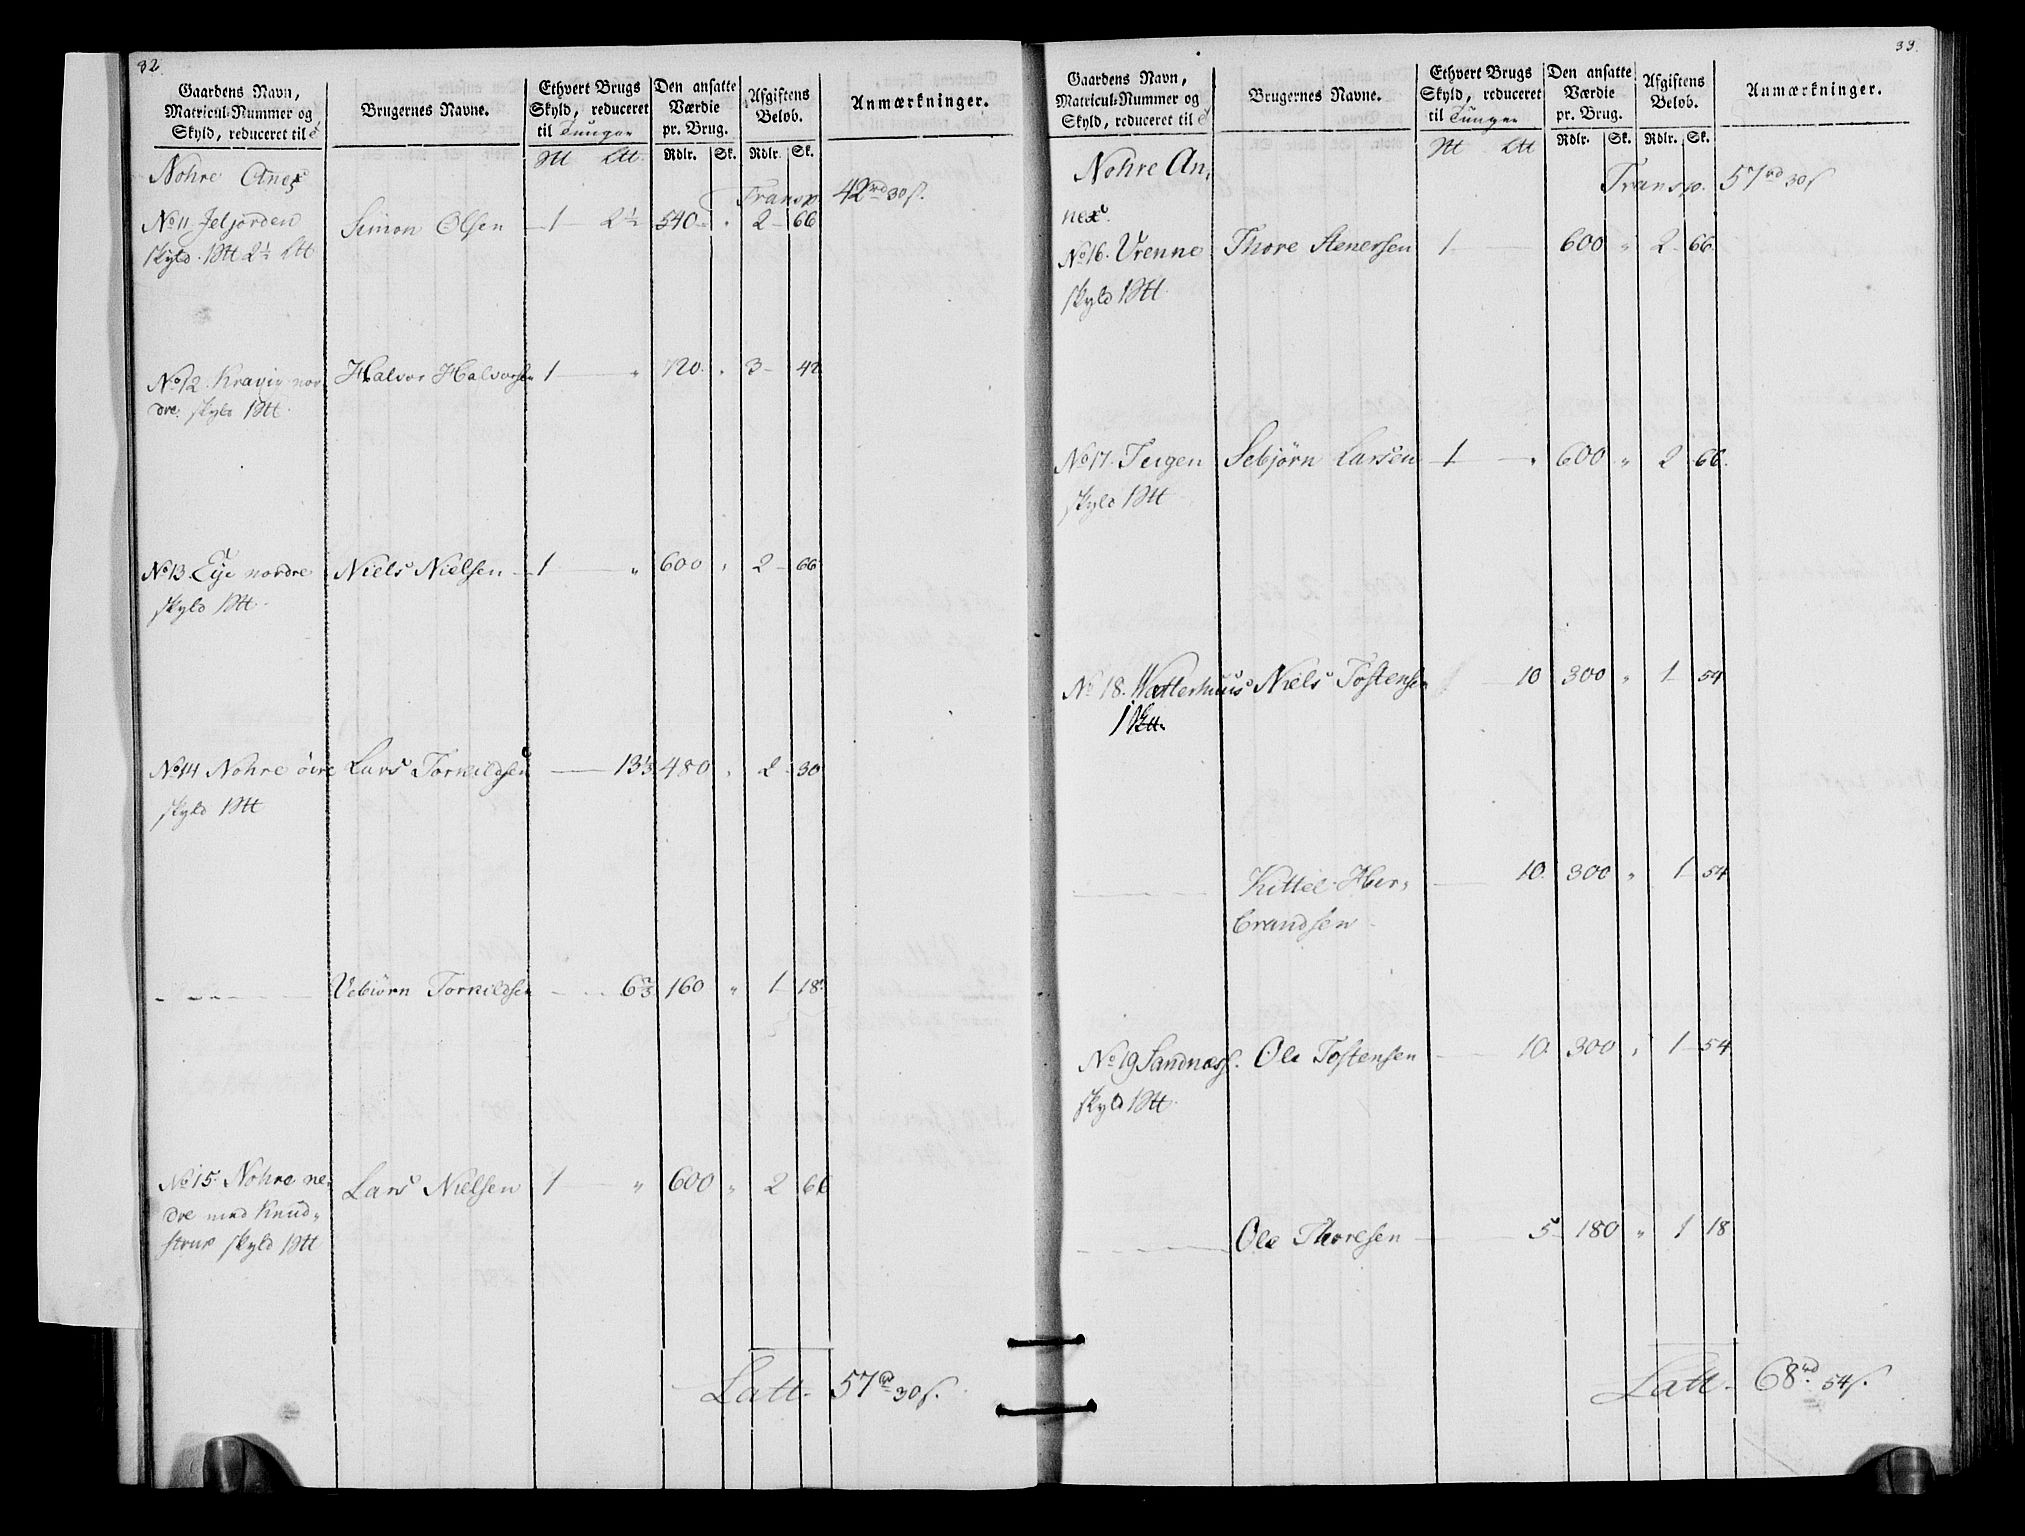 32.
Gaardens Navn,
Matricul-Nummer og
Skyld, reduceret til
Brugernes Navne.
Ethvert Brugs
Skyld, reduceret
til Tunger
Den ansatte
Værdie
pr. Brug.
Afgiftens
Beløb.
Anmærkninger.
Rdlr. Sk. Rdlr. Sk.
Nohre Anex
Transp. 42rd 30s.
No 11 Jeljorden Simon Olsen 1 2½ 540 " 2 66
skyld 1 2½
No 12 Kravig nor Halvor Halvorsen 1 " 720 " 3 42
dre. skyld 1
No 13 Eje nordre Niels Nielsen 1 " 600 " 2 66
skyld 1
No 14 Nohre øvre Lars Torkildsen 13⅓ 480 " 2 30
skyld 1
Vebiørn Torkildsen 6⅔ 160 " 1 18
No 15 Nohre ne- Lars Nielsen 1 " 600 " 2 66
dre med Knud-
strup skyld 1
Latt. 57rd 30s.
33.
Gaardens Navn,
Matricul-Nummer og
Skyld, reduceret til
Brugernes Navne.
Ethvert Brugs
Skyld, reduceret
til Tunger
Den ansatte
Værdie
pr. Brug.
Afgiftens
Beløb.
Anmærkninger.
Rdlr. Sk. Rdlr. Sk.
Nohre An-
nex.
Transp. 57rd 30s
No 16. Vrenne Thore Stenersen 1 600 " 2 66
skyld 1
No 17. Teigen Sebjørn Larsen 1 " 600 " 2 66.
skyld 1
No 18. Watterhuus Niels Tostensen 10 300 " 1 54
1
Kittel Her-
brandsen 10. 300 " 1 54
No 19 Sandness. Ole Tostensen 10. 300 " 1 54
skyld 1
Ole Thoresen 5 180 " 1 18
Latt. 68rd 54s.